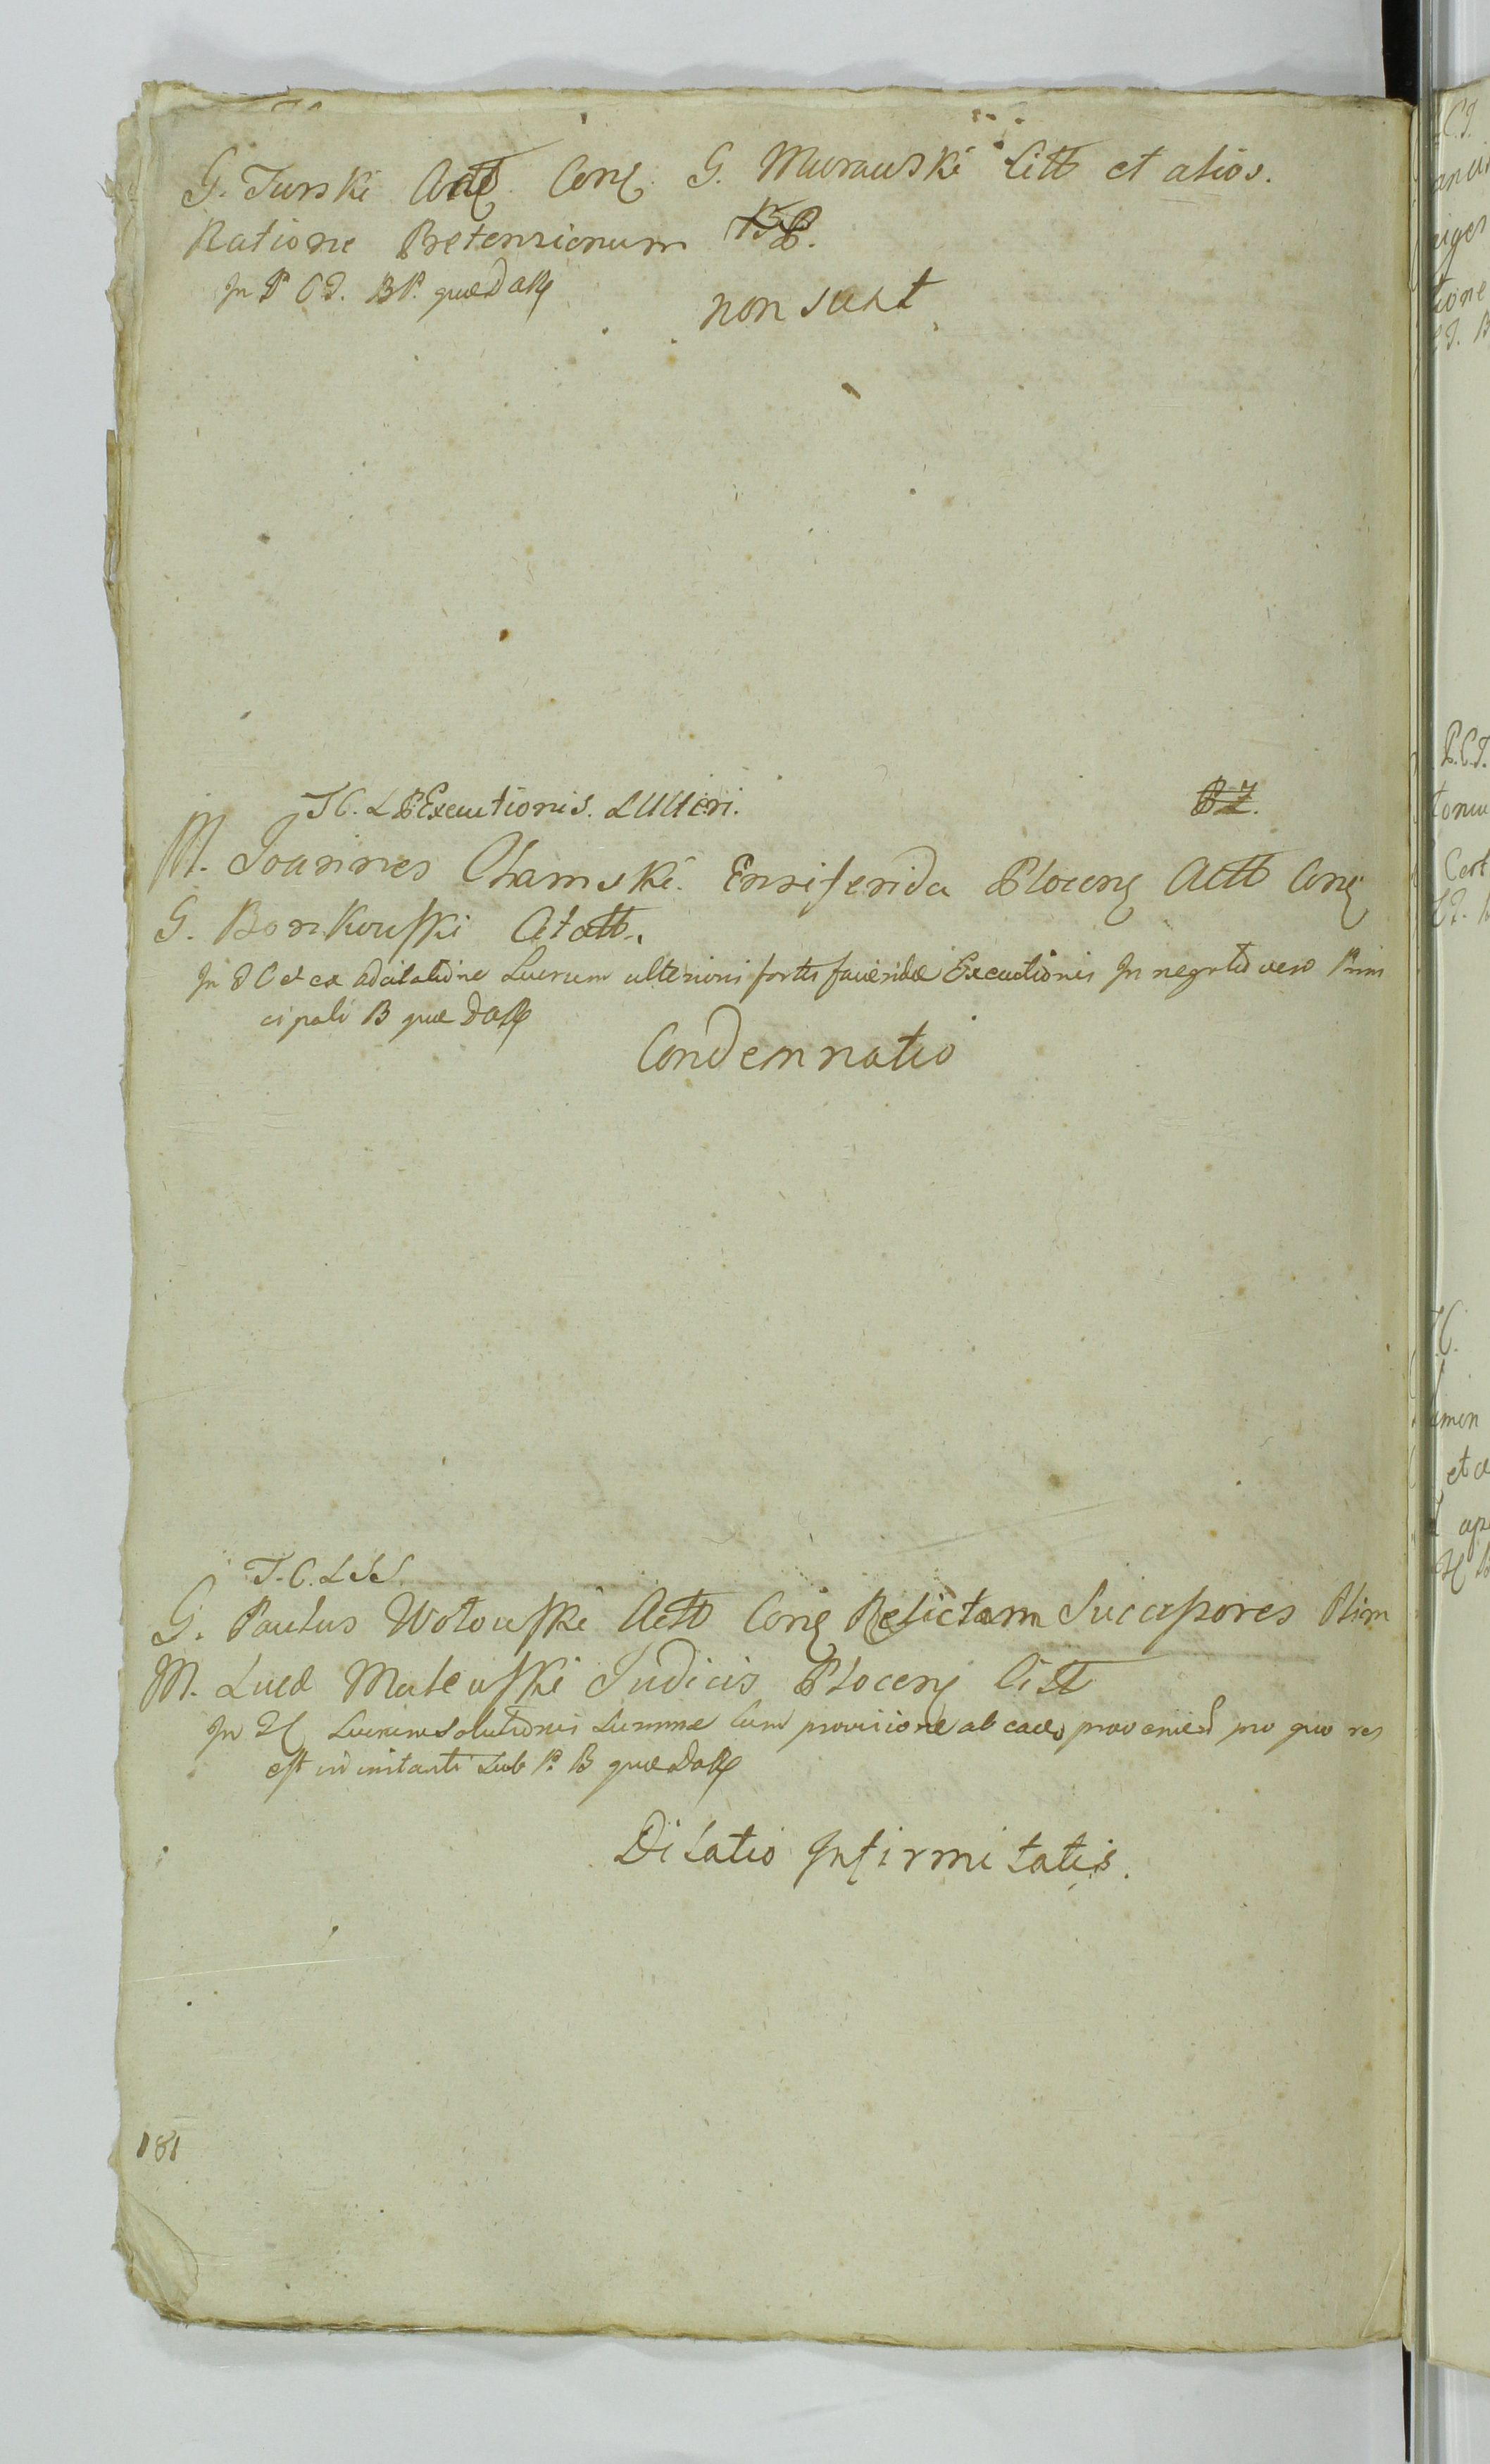 G. Turski Actt. Con. G. Murawski Citt et alios.
Ratione Pretensionum
In P C I. BP. quæ daRe
non sunt
T C. L P Executionis. Lucri.
M. Joannes Chamski. Ensiferida Plocen Actt Con
G. Bonkowski Citatt.
In I C et ex adcitatione Lucrum ulterioris fortis faciendæ Executionis In negotio vero Prin
cipali B quæ daRe
Condemnatio
T. C. L
G. Paulus Wotowski Actt Con Relictam Successores Olim
M. Lued Malewski Judicis Plocen Citt
In Lucrum Solutionis Summæ Cum provisione ab ea pro quo res
est in instanti Sub P. B quæ daRe
Dilatio Infirmitatis.
181